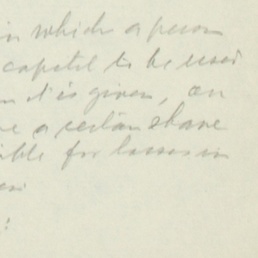 in which a person
capital to be used
it is given, on
a certain share
ible for losses in
: